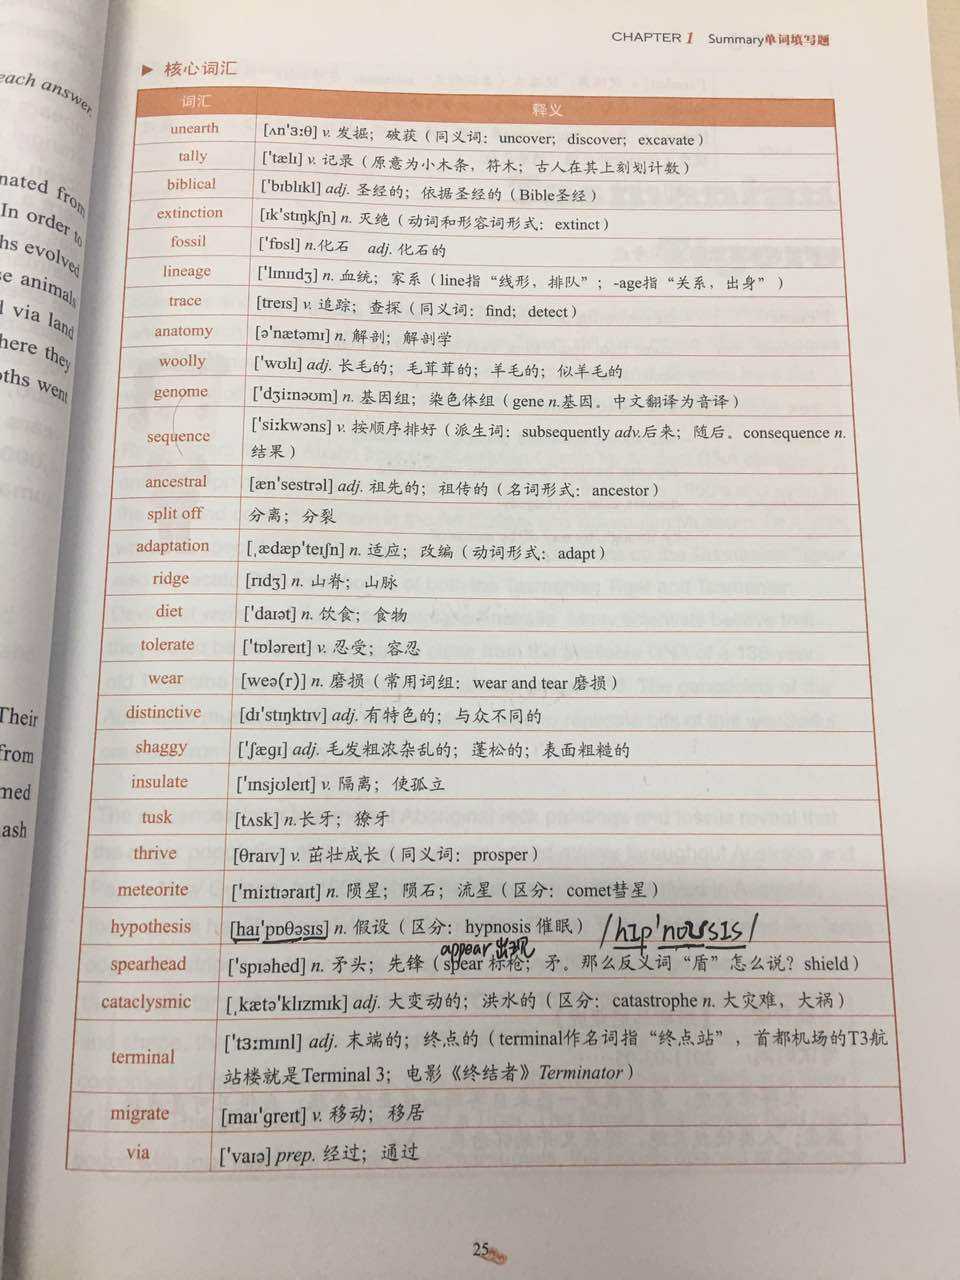 each answer.
nated from
In order to
hs evolved
se animals
l via land
here they
oths went
Their
from
med
ash
CHAPTER 1 Summary单词填写题
▶ 核心词汇
词汇 释义
unearth [ʌn'ɜːθ] v. 发掘；破获（同义词：uncover；discover；excavate）
tally ['tælɪ] v. 记录（原意为小木条，符木；古人在其上刻划计数）
biblical ['bɪblɪkl] adj. 圣经的；依据圣经的（Bible圣经）
extinction [ɪk'stɪŋkʃn] n. 灭绝（动词和形容词形式：extinct）
fossil ['fɒsl] n.化石 adj.化石的
lineage ['lɪnɪɪdʒ] n. 血统；家系（line指“线形，排队”；-age指“关系，出身”）
trace [treɪs] v. 追踪；查探（同义词：find；detect）
anatomy [ə'nætəmɪ] n. 解剖；解剖学
woolly ['wʊlɪ] adj. 长毛的；毛茸茸的；羊毛的；似羊毛的
genome ['dʒiːnəʊm] n. 基因组；染色体组（gene n.基因。中文翻译为音译）
sequence ['siːkwəns] v. 按顺序排好（派生词：subsequently adv.后来；随后。consequence n.
结果）
ancestral [æn'sestrəl] adj. 祖先的；祖传的（名词形式：ancestor）
split off 分离；分裂
adaptation [ˌædæp'teɪʃn] n. 适应；改编（动词形式：adapt）
ridge [rɪdʒ] n. 山脊；山脉
diet ['daɪət] n. 饮食；食物
tolerate ['tɒləreɪt] v. 忍受；容忍
wear [weə(r)] n. 磨损（常用词组：wear and tear 磨损）
distinctive [dɪ'stɪŋktɪv] adj. 有特色的；与众不同的
shaggy ['ʃægɪ] adj. 毛发粗浓杂乱的；蓬松的；表面粗糙的
insulate ['ɪnsjʊleɪt] v. 隔离；使孤立
tusk [tʌsk] n.长牙；獠牙
thrive [θraɪv] v. 茁壮成长（同义词：prosper）
meteorite ['miːtɪəraɪt] n. 陨星；陨石；流星（区分：comet彗星）
hypothesis [haɪ'pɒθəsɪs] n. 假设（区分：hypnosis 催眠） /hɪp'noʊsɪs/
appear 出现
spearhead ['spɪəhed] n. 矛头；先锋（spear 标枪；矛。那么反义词“盾”怎么说？shield）
cataclysmic [ˌkætə'klɪzmɪk] adj. 大变动的；洪水的（区分：catastrophe n. 大灾难，大祸）
terminal ['tɜːmɪnl] adj. 末端的；终点的（terminal作名词指“终点站”，首都机场的T3航
站楼就是Terminal 3；电影《终结者》Terminator）
migrate [maɪ'greɪt] v. 移动；移居
via ['vaɪə] prep. 经过；通过
25